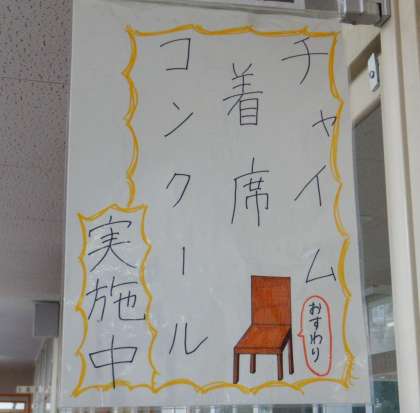 チャイム
着席
コンクール
実施中
おすわり